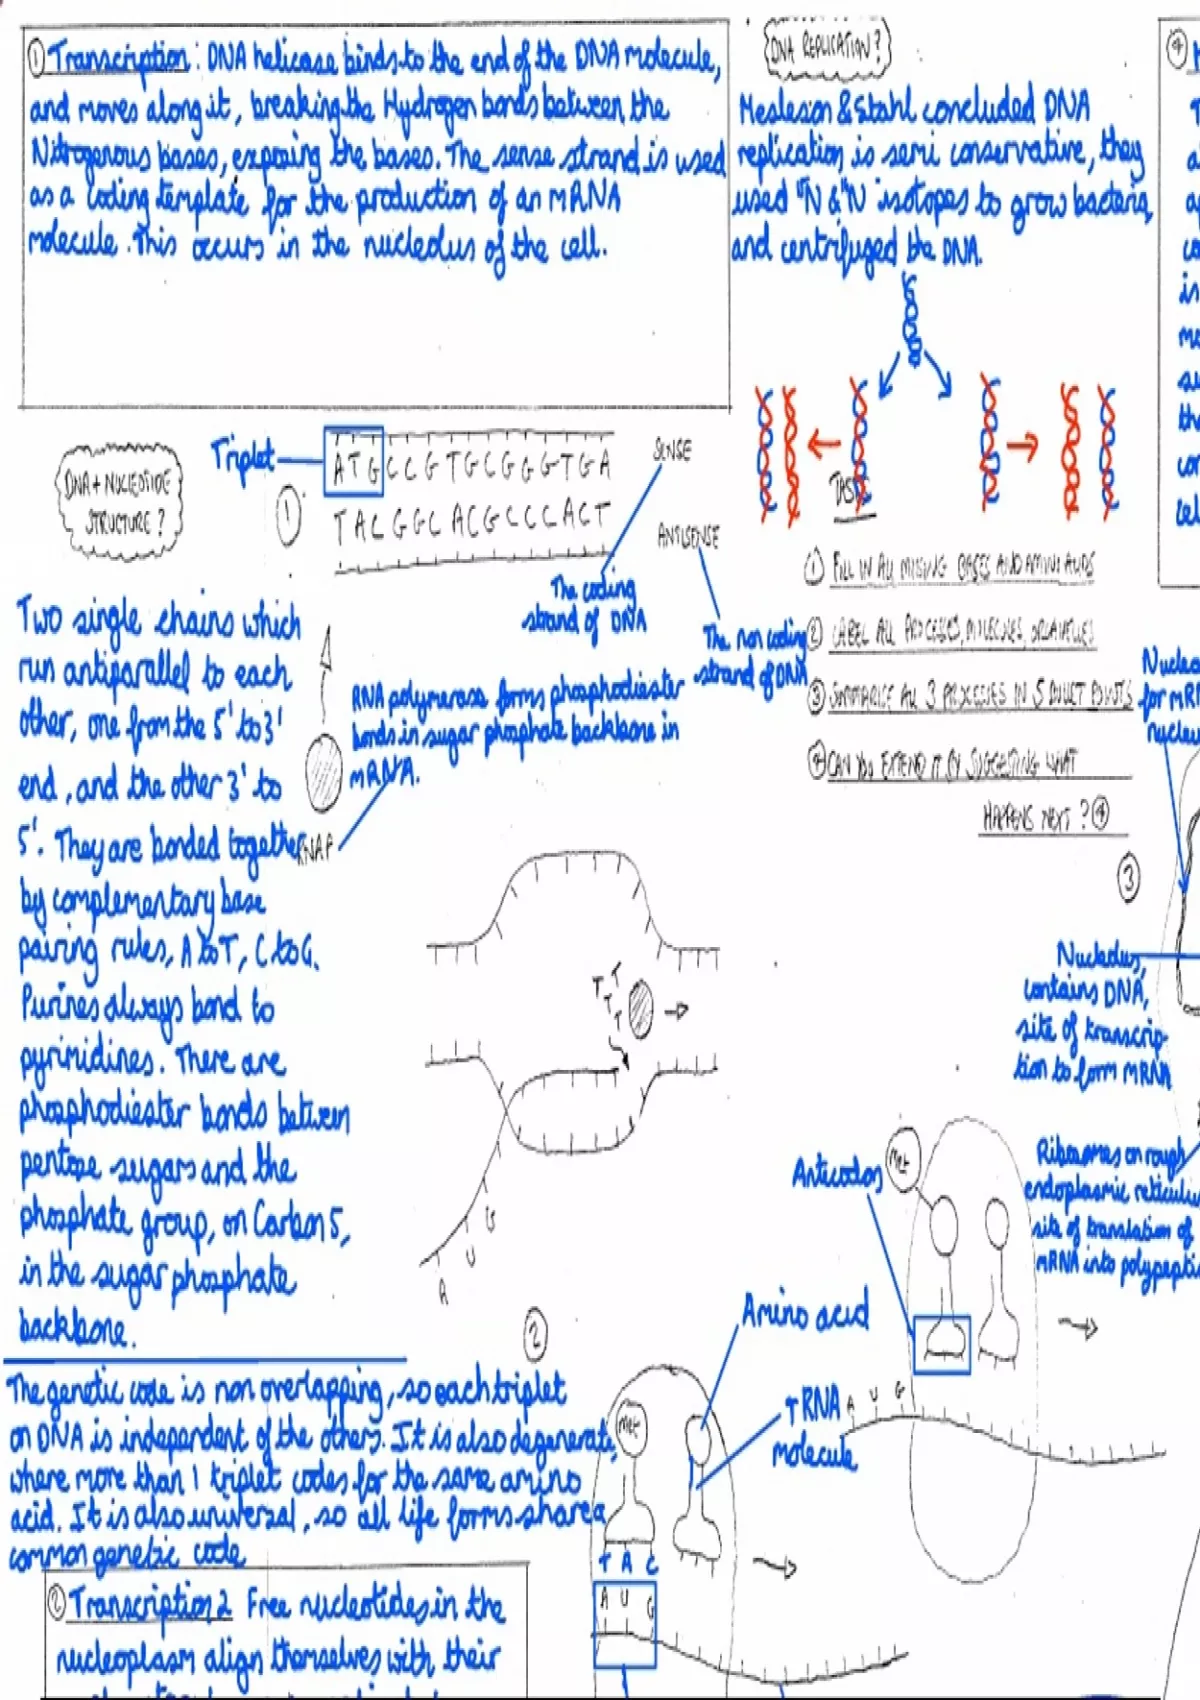 ① Transcription: DNA helicase binds to the end of the DNA molecule,
and moves along it, breaking the Hydrogen bonds between the
Nitrogenous bases, exposing the bases. The sense strand is used
as a coding template for the production of an mRNA
molecule. This occurs in the nucleolus of the cell.
DNA REPLICATION?
Meselson & Stahl concluded DNA
replication is semi conservative, they
used N & N isotopes to grow bacteria,
and centrifuged the DNA.
④
DNA + NUCLEOTIDE
STRUCTURE?
Triplet
①
ATGCCGTGCGGGTGA
TACGGCACGCCCACT
SENSE
ANTISENSE
The coding
strand of DNA
The non coding
strand of DNA
Two single chains which
run antiparallel to each
other, one from the 5' to 3'
end, and the other 3' to
5'. They are bonded together
by complementary base
pairing rules, A to T, C to G.
Purines always bond to
pyrimidines. There are
phosphodiester bonds between
pentose sugars and the
phosphate group, on Carbon 5,
in the sugar phosphate
backbone.
RNA polymerase forms phosphodiester
bonds in sugar phosphate backbone in
mRNA.
RNAP
TASK
① FILL IN ALL MISSING BASES AND AMINO ACIDS
② LABEL ALL PROCESSES, MOLECULES, ORGANELLES
③ SUMMARISE ALL 3 PROCESSES IN 5 BULLET POINTS
④ CAN YOU EXTEND IT BY SUGGESTING WHAT
HAPPENS NEXT? ④
T T
T
T
A U G
②
③
for mRN
Nucleolus,
contains DNA,
site of transcrip-
tion to form mRNA
Ribosomes on rough
endoplasmic reticulu
site of translation of
mRNA into polypepti
Anticodon
Met
A U G
Amino acid
tRNA
molecule
Met
T A C
A U G
The genetic code is non overlapping, so each triplet
on DNA is independent of the others. It is also degenerate,
where more than 1 triplet codes for the same amino
acid. It is also universal, so all life forms share a
common genetic code
② Transcription 2 Free nucleotides in the
nucleoplasm align themselves with their